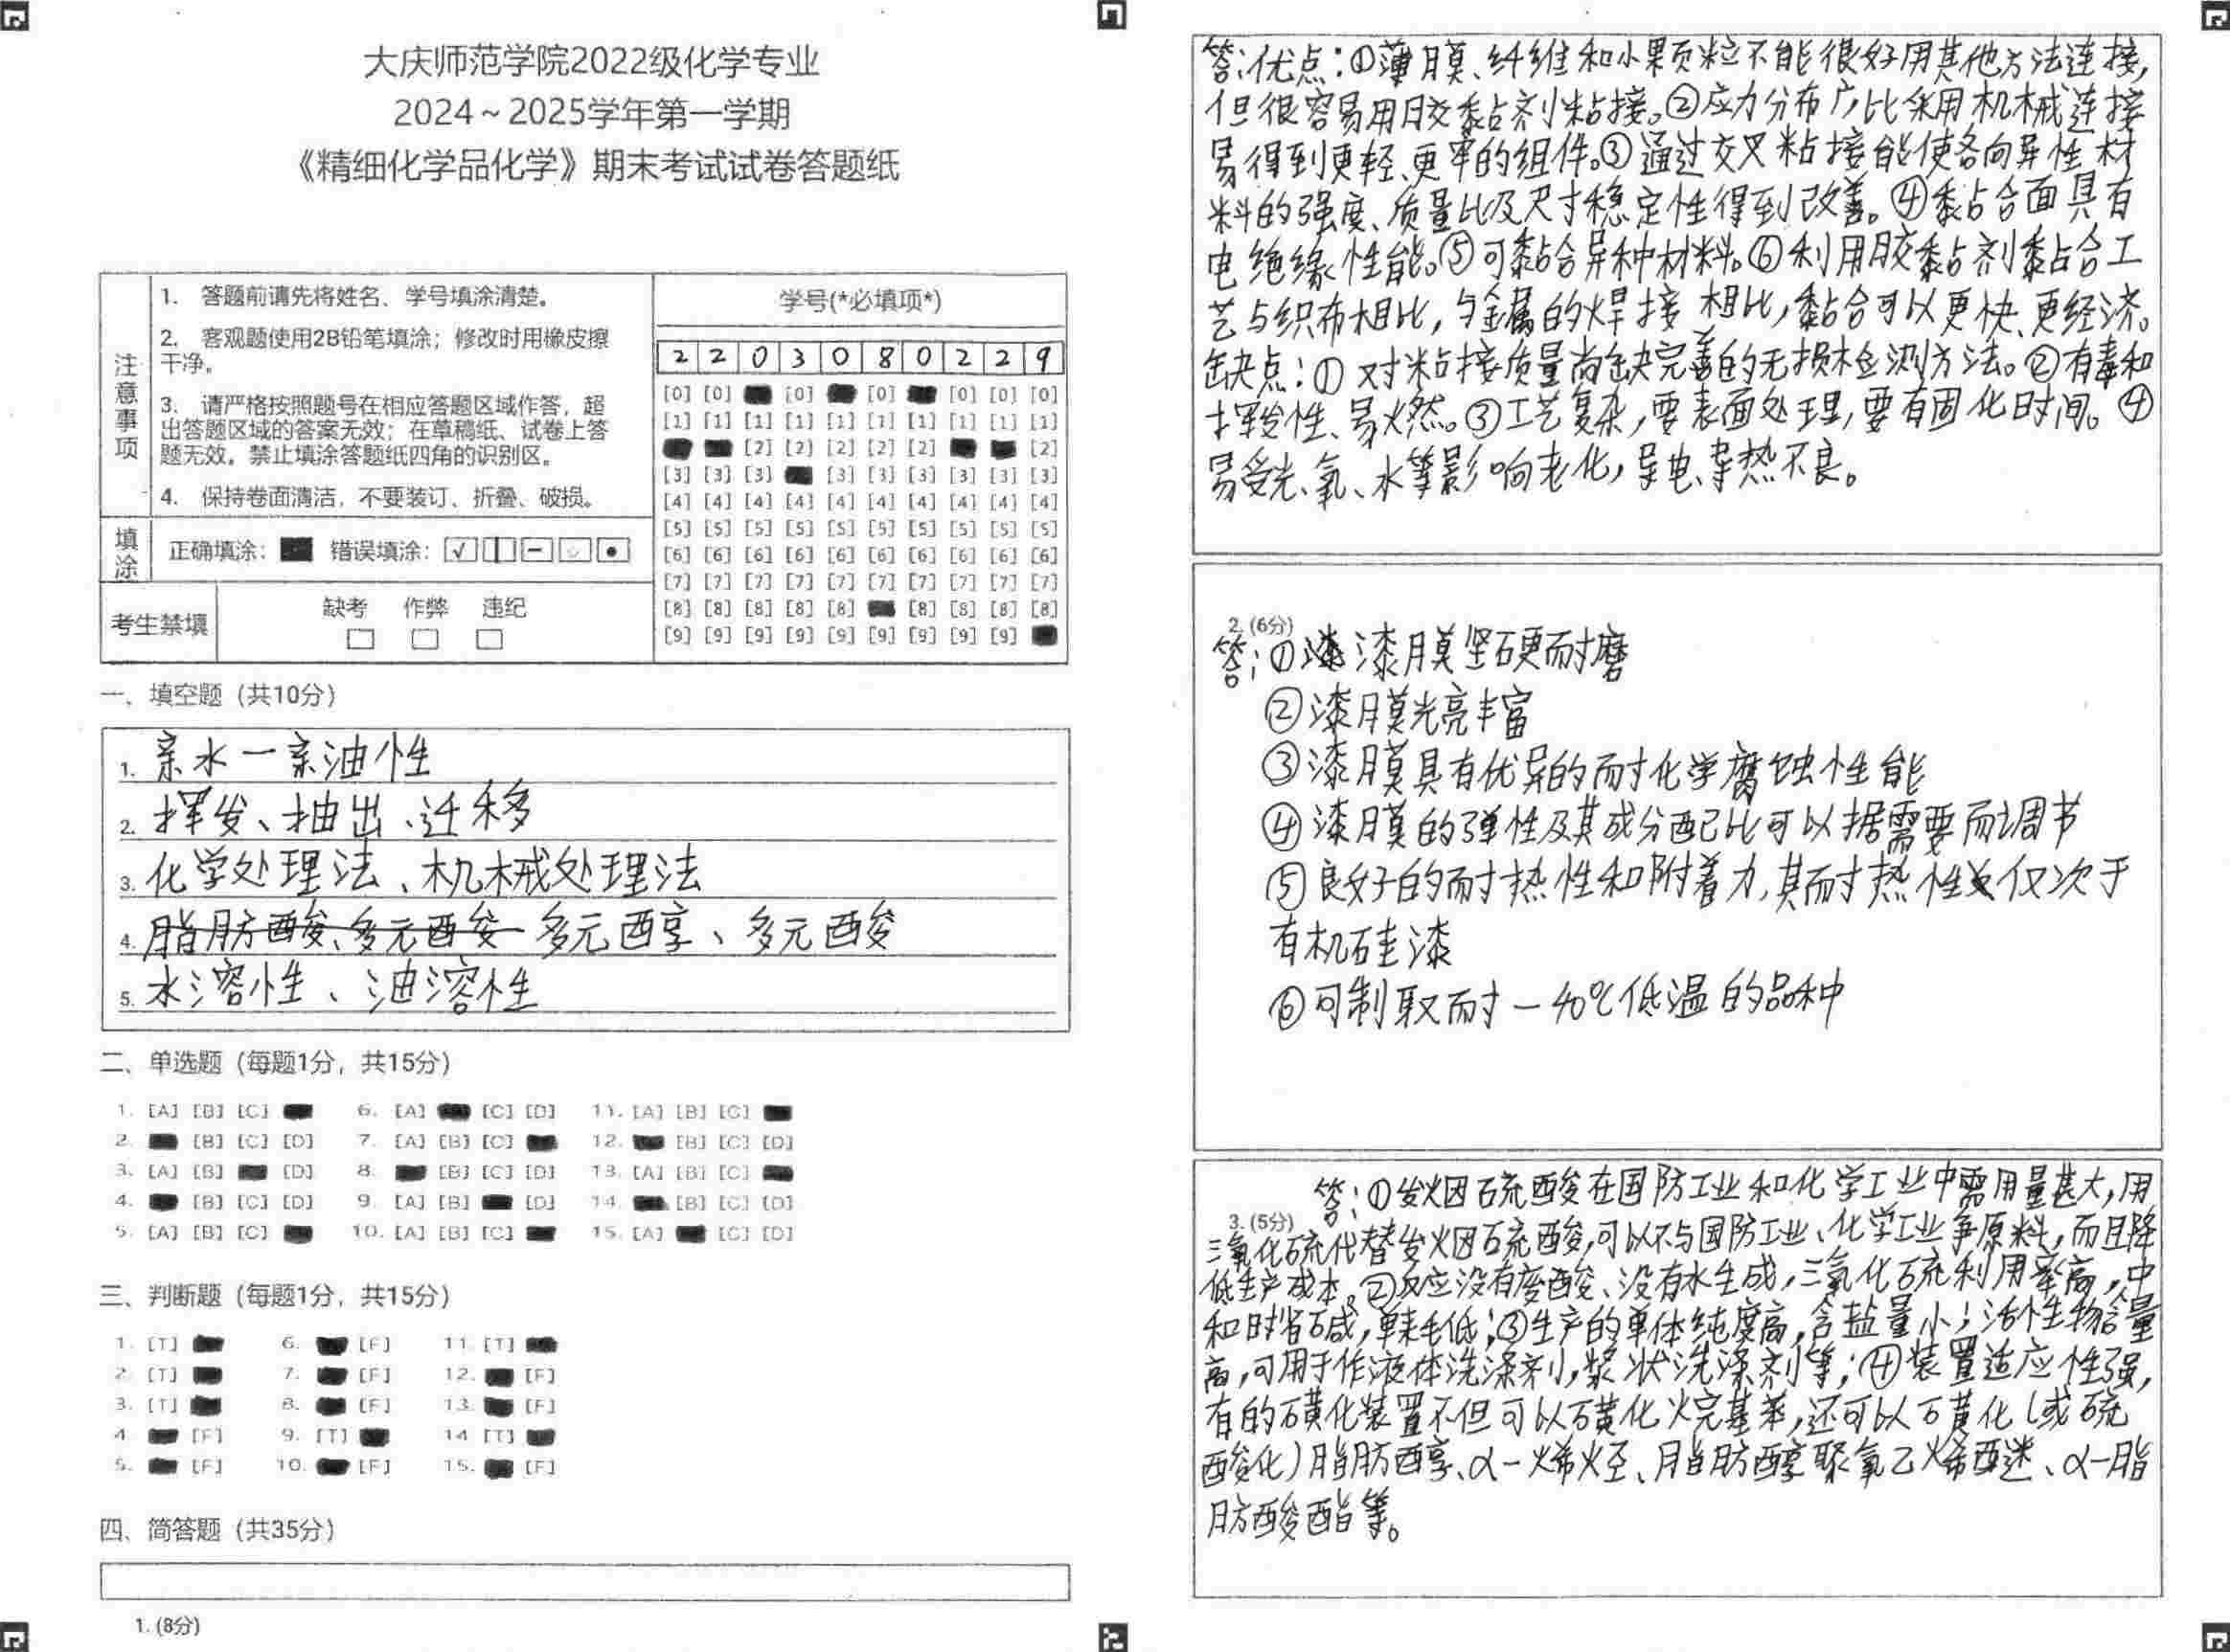 大庆师范学院2022级化学专业
2024～2025学年第一学期
《精细化学品化学》期末考试试卷答题纸
注意事项
1. 答题前请先将姓名、学号填涂清楚。
2. 客观题使用2B铅笔填涂；修改时用橡皮擦
干净。
3. 请严格按照题号在相应答题区域作答，超
出答题区域的答案无效；在草稿纸、试卷上答
题无效。禁止填涂答题纸四角的识别区。
4. 保持卷面清洁，不要装订、折叠、破损。
填涂
正确填涂： 错误填涂：
考生禁填
缺考 作弊 违纪
学号(*必填项*)
2 2 0 3 0 8 0 2 2 9
[0] [0] [0] [0] [0] [0] [0]
[1] [1] [1] [1] [1] [1] [1] [1] [1] [1]
[2] [2] [2] [2] [2] [2]
[3] [3] [3] [3] [3] [3] [3] [3] [3]
[4] [4] [4] [4] [4] [4] [4] [4] [4] [4]
[5] [5] [5] [5] [5] [5] [5] [5] [5] [5]
[6] [6] [6] [6] [6] [6] [6] [6] [6] [6]
[7] [7] [7] [7] [7] [7] [7] [7] [7] [7]
[8] [8] [8] [8] [8] [8] [8] [8] [8]
[9] [9] [9] [9] [9] [9] [9] [9] [9]
一、填空题（共10分）
1. 亲水一亲油性
2. 挥发、抽出、迁移
3. 化学处理法、机械处理法
4. 脂肪酸、多元酸 多元醇、多元酸
5. 水溶性、油溶性
二、单选题（每题1分，共15分）
1. [A] [B] [C] 6. [A] [C] [D] 11. [A] [B] [C]
2. [B] [C] [D] 7. [A] [B] [C] 12. [B] [C] [D]
3. [A] [B] [D] 8. [B] [C] [D] 13. [A] [B] [C]
4. [B] [C] [D] 9. [A] [B] [D] 14. [B] [C] [D]
5. [A] [B] [C] 10. [A] [B] [C] 15. [A] [C] [D]
三、判断题（每题1分，共15分）
1. [T] 6. [F] 11. [T]
2. [T] 7. [F] 12. [F]
3. [T] 8. [F] 13. [F]
4. [F] 9. [T] 14. [T]
5. [F] 10. [F] 15. [F]
四、简答题（共35分）
1. (8分)
答：优点：①薄膜、纤维和小颗粒不能很好用其他方法连接，
但很容易用胶黏剂粘接。②应力分布广，比采用机械连接
易得到更轻、更牢的组件。③通过交叉粘接能使各向异性材
料的强度、质量比及尺寸稳定性得到改善。④黏合面具有
电绝缘性能。⑤可黏合异种材料。⑥利用胶黏剂黏合工
艺与织布相比，与金属的焊接相比，黏合可以更快、更经济。
缺点：①对粘接质量尚缺完善的无损检测方法。②有毒和
挥发性、易燃。③工艺复杂，要表面处理，要有固化时间。④
易受光、氧、水等影响老化，导电、导热不良。
2. (6分)
答：①漆膜坚硬而耐磨
②漆膜光亮丰富
③漆膜具有优异的耐化学腐蚀性能
④漆膜的弹性及其成分配比可以据需要而调节
⑤良好的耐热性和附着力，其耐热性仅次于
有机硅漆
⑥可制取耐－40℃低温的品种
答：①发烟硫酸在国防工业和化学工业中需用量甚大，用
3. (5分)
三氧化硫代替发烟硫酸，可以不与国防工业、化学工业争原料，而且降
低生产成本。②反应没有废酸、没有水生成，三氧化硫利用率高，中
和时省碱，单耗低；③生产的单体纯度高，含盐量小；活性物含量
高，可用于作液体洗涤剂，浆状洗涤剂等；④装置适应性强，
有的磺化装置不但可以磺化烷基苯，还可以磺化（或硫
酸化）脂肪醇、α－烯烃、脂肪醇聚氧乙烯醚、α－脂
肪酸酯等。